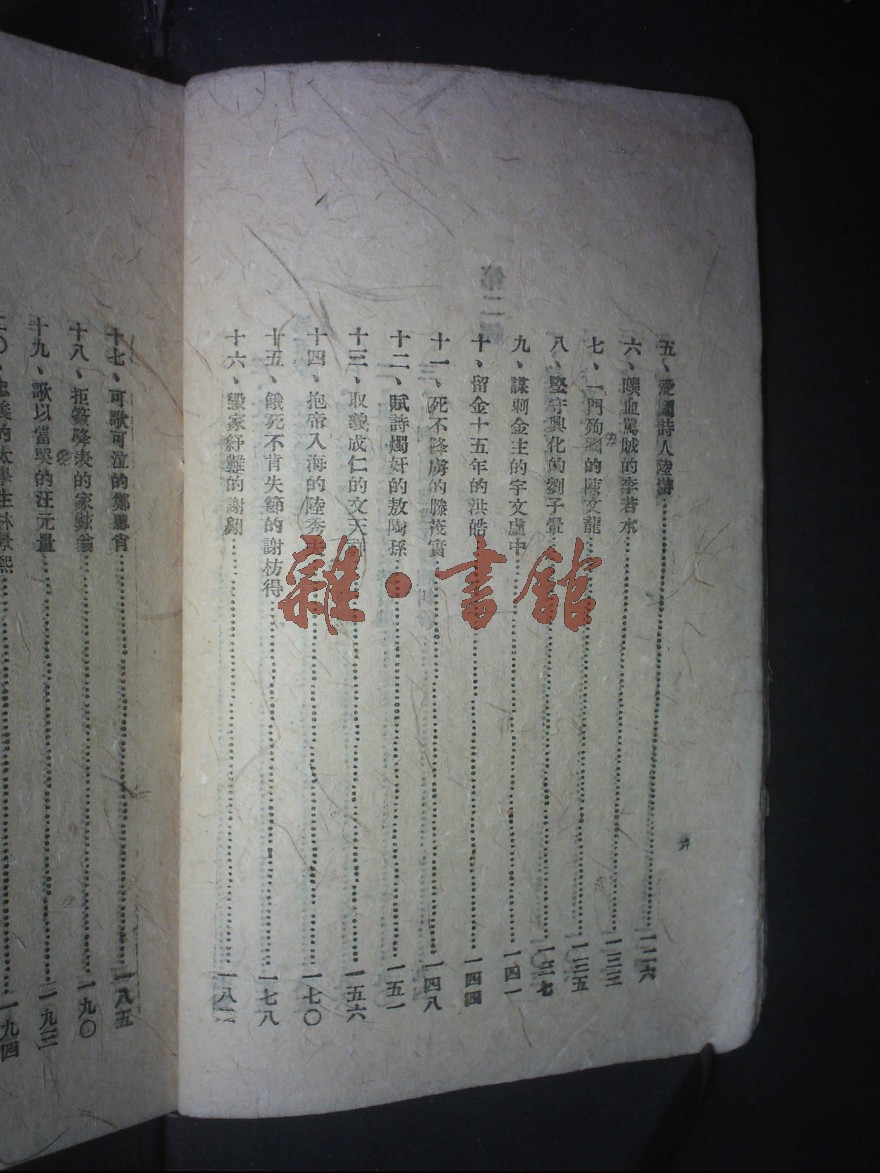 五、愛國詩人陸游……一二六
六、噀血罵賊的李若水……一三三
七、一門殉國的陳文龍……一三五
八、堅守興化的劉子翬……一三七
九、謀刺金主的宇文虛中……一四一
十、留金十五年的洪皓……一四四
十一、死不降虜的滕茂實……一四八
十二、賦詩燭奸的敖陶孫……一五一
十三、取義成仁的文天祥……一五六
十四、抱帝入海的陸秀夫……一七〇
十五、餓死不肯失節的謝枋得……一七八
十六、毀家紓難的謝翱……一八
十七、可歌可泣的鄭思肖……一八五
十八、拒簽降表的家鉉翁……一九〇
十九、歌以當哭的汪元量……一九三
二〇、忠義的太學生林景熙……一九四
雜·書館